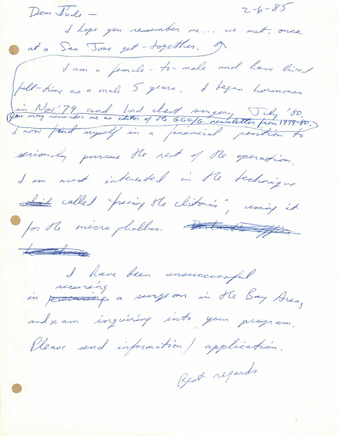 Dear Jude — 2-6-85
I hope you remember me... we met, once
at a San Jose get-together.
I am a female-to-male and have lived
full-time as a male 5 years. I began hormones
in Nov '79 and had chest surgery July '80.
(You may remember me as editor of the GGG/G newsletter from 1979-80.
I now find myself in a financial position to
seriously pursue the rest of the operation.
I am most interested in the technique
called "freeing the clitoris", using it
for the microphallus.
I have been unsuccessful
in securing a surgeon in the Bay Area,
and am inquiring into your program.
Please send information/application.
Best regards